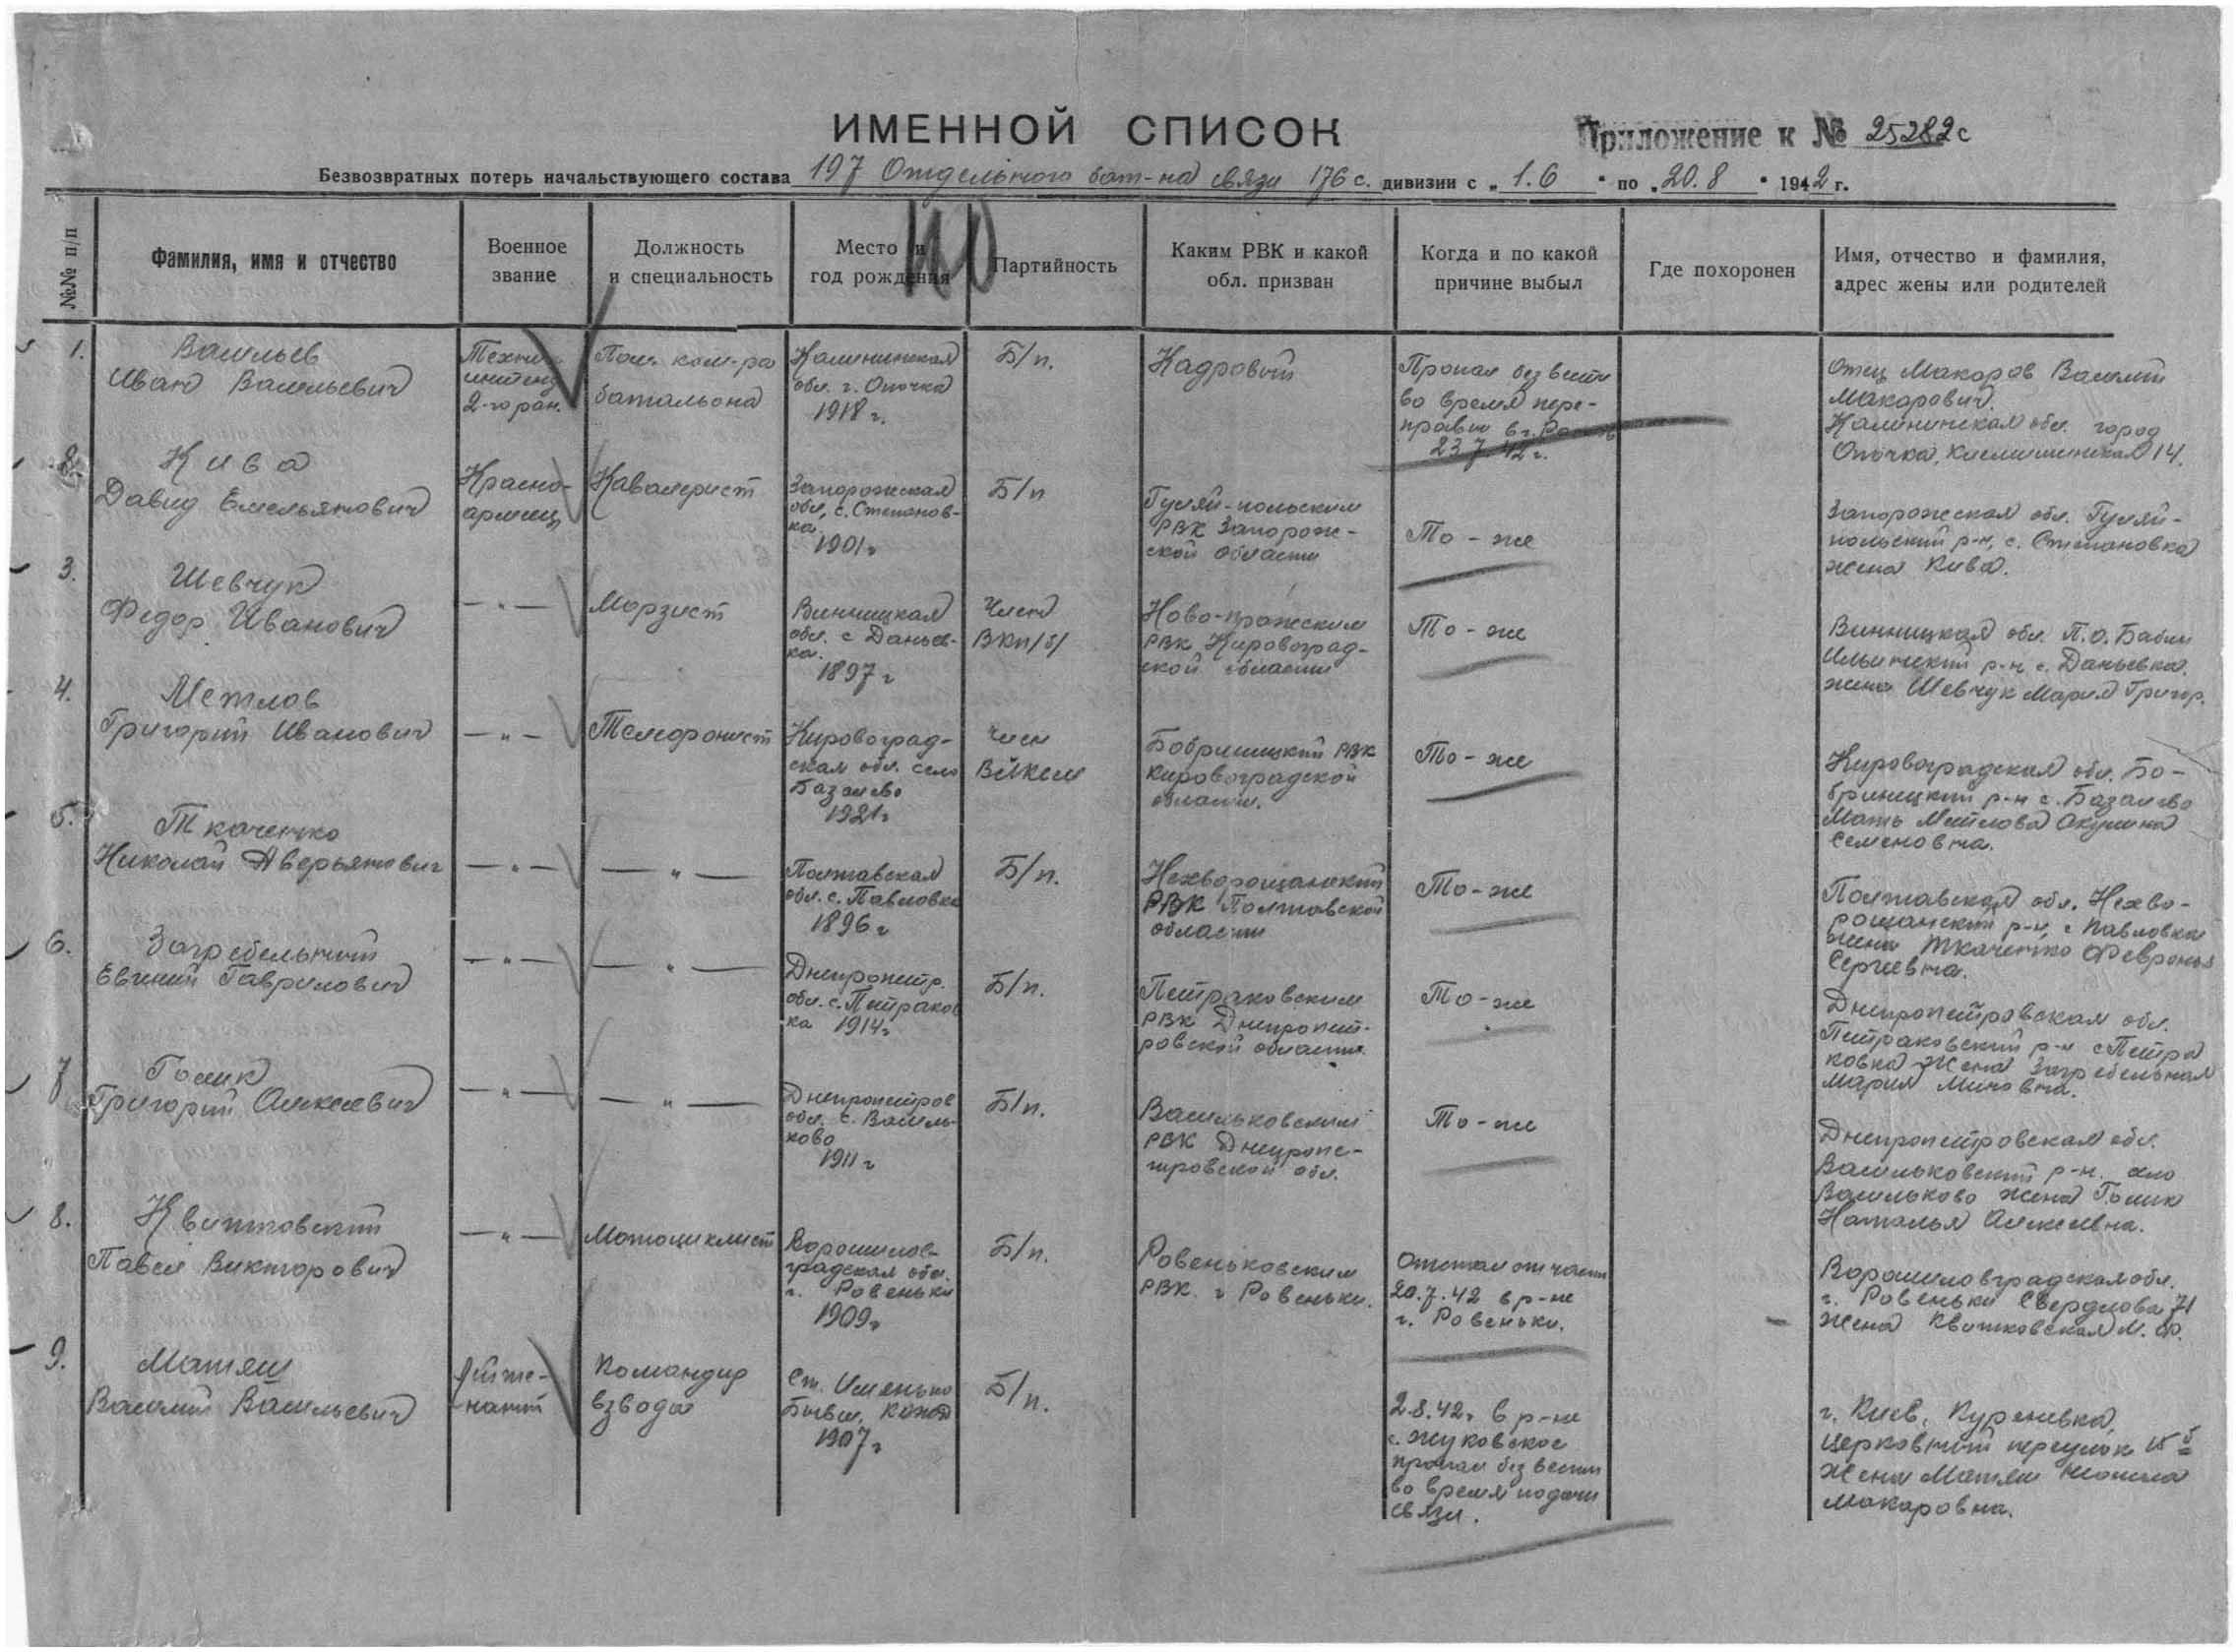 ИМЕННОЙ СПИСОК
Приложение к № 25282с
Безвозвратных потерь начальствующего состава 197 Отдельного бат-на связи 176 с. дивизии с „1.6“ по „20.8“ 1942 г.
№№ п/п
Фамилия, имя и отчество
Военное
звание
Должность
и специальность
Место и
год рождения
Партийность
Каким РВК и какой
обл. призван
Когда и по какой
причине выбыл
Где похоронен
Имя, отчество и фамилия,
адрес жены или родителей
1.
Васильев
Иван Васильевич
Техник
интенд
2-го ран.
Пом. ком-ра
батальона
Калининская
обл. г. Опочка
1918 г.
Б/п.
Кадровый
Пропал без вести
во время пере-
правы в г.
23.7.42 г.
Отец Макаров Василий
Макарович.
Калининская обл. город
Опочка, 14.
2.
Кива
Давид Емельянович
Красно-
армеец
Кавалерист
Запорожская
обл, с. Степанов-
ка
1901 г
Б/п
Гуляй-польским
РВК Запорож-
ской области
То-же
Запорожская обл. Гуляй-
польский р-н, с. Степановка
жена Кива.
3.
Шевчук
Федор Иванович
—"—
Морзист
Винницкая
обл. с Даньев-
ка.
1897 г
Член
ВКП/б/
Ново-пражским
РВК Кировоград-
ской области
То-же
Винницкая обл. П.О. Бабин
Ильинский р-н с. Даньевка.
жена Шевчук Мария Григор.
4.
Метлов
Григорий Иванович
—"—
Телефонист
Кировоград-
ская обл. село
1921 г
Член
ВЛКСМ
Бобринецкий РВК
Кировоградской
области.
То-же
Кировоградская обл. Бо-
бринецкий р-н с.
Мать Метлова Акулина
Семеновна.
5.
Ткаченко
Николай Аверьянович
—"—
—"—
Полтавская
обл. с. Павловка
1896 г
Б/п.
Нехворощанский
РВК Полтавской
области
То-же
Полтавская обл. Нехво-
рощанский р-н, с Павловка
жена Ткаченко Февронья
Сергеевна.
6.
Загребельный
Евгений Гаврилович
—"—
—"—
Днепропетр.
обл. с. Петраков
ка 1914 г
Б/п.
Петраковским
РВК Днепропет-
ровской области.
То-же
Днепропетровская обл.
Петраковский р-н с Петра
ковка жена Загребельная
Мария Миновна.
7
Голик
Григорий Алексеевич
—"—
—"—
Днепропетров
обл. с. Василь-
ково
1911 г
Б/п.
Васильковским
РВК Днепропе-
тровской обл.
То-же
Днепропетровская обл.
Васильковский р-н. село
Васильково жена Голик
Наталья Алексеевна.
8.
Квитковский
Павел Викторович
—"—
Мотоциклист
Ворошилов-
градская обл.
г. Ровеньки
1909 г
Б/п.
Ровеньковским
РВК г Ровеньки.
Отстал от части
20.7.42 в р-не
г. Ровеньки.
Ворошиловградская обл.
г. Ровеньки Свердлова 71
жена Квитковская М. Ф.
9.
Матяш
Василий Васильевич
Лейте-
нант
Командир
взвода
Ст.
Бывш.
1907 г
Б/п.
2.8.42 г в р-не
с. Жуковское
пропал без вести
во время подачи
связи.
г. Киев, Куреневка,
Церковный переулок 15
жена Матяш
Макаровна.